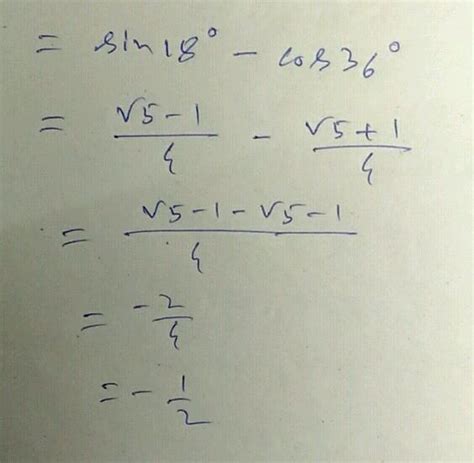 = sin18° - cos36°
= (√5-1)/4 - (√5+1)/4
= (√5-1-√5-1)/4
= -2/4
= -1/2